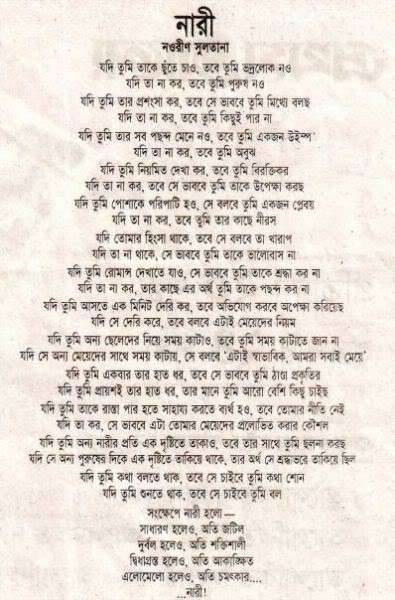 নারী
নওরীণ সুলতানা
যদি তুমি তাকে ছুঁতে চাও, তবে তুমি ভদ্রলোক নও
যদি তা না কর, তবে তুমি পুরুষ নও
যদি তুমি তার প্রশংসা কর, তবে সে ভাববে তুমি মিথ্যে বলছ
যদি তা না কর, তবে তুমি কিছুই পার না
যদি তুমি তার সব পছন্দ মেনে নও, তবে তুমি একজন উইম্প
যদি তা না কর, তবে তুমি অবুঝ
যদি তুমি নিয়মিত দেখা কর, তবে তুমি বিরক্তিকর
যদি তা না কর, তবে সে ভাববে তুমি তাকে উপেক্ষা করছ
যদি তুমি পোশাকে পরিপাটি হও, সে বলবে তুমি একজন প্লেবয়
যদি তা না কর, তবে তুমি তার কাছে নীরস
যদি তোমার হিংসা থাকে, তবে সে বলবে তা খারাপ
যদি তা না থাকে, সে ভাববে তুমি তাকে ভালোবাস না
যদি তুমি রোমান্স দেখাতে যাও, সে ভাববে তুমি তাকে শ্রদ্ধা কর না
যদি তা না কর, তার কাছে এর অর্থ তুমি তাকে পছন্দ কর না
যদি তুমি আসতে এক মিনিট দেরি কর, তবে অভিযোগ করবে অপেক্ষা করিয়েছ
যদি সে দেরি করে, তবে বলবে এটাই মেয়েদের নিয়ম
যদি তুমি অন্য ছেলেদের নিয়ে সময় কাটাও, তবে তুমি সময় কাটাতে জান না
যদি সে অন্য মেয়েদের সাথে সময় কাটায়, সে বলবে ‘এটাই স্বাভাবিক, আমরা সবাই মেয়ে’
যদি তুমি একবার তার হাত ধর, তবে সে ভাববে তুমি ঠাণ্ডা প্রকৃতির
যদি তুমি প্রায়শই তার হাত ধর, তার মানে তুমি আরো বেশি কিছু চাইছ
যদি তুমি তাকে রাস্তা পার হতে সাহায্য করতে ব্যর্থ হও, তবে তোমার নীতি নেই
যদি তা কর, সে ভাববে এটা তোমার মেয়েদের প্রলোভিত করার কৌশল
যদি তুমি অন্য নারীর প্রতি এক দৃষ্টিতে তাকাও, তবে তার সাথে তুমি ছলনা করছ
যদি সে অন্য পুরুষের দিকে এক দৃষ্টিতে তাকিয়ে থাকে, তার অর্থ সে শ্রদ্ধাভরে তাকিয়ে ছিল
যদি তুমি কথা বলতে থাক, তবে সে চাইবে তুমি কথা শোন
যদি তুমি শুনতে থাক, তবে সে চাইবে তুমি বল
সংক্ষেপে নারী হলো—
সাধারণ হলেও, অতি জটিল
দুর্বল হলেও, অতি শক্তিশালী
দ্বিধাগ্রস্ত হলেও, অতি আকাঙ্ক্ষিত
এলোমেলো হলেও, অতি চমৎকার....
...নারী!